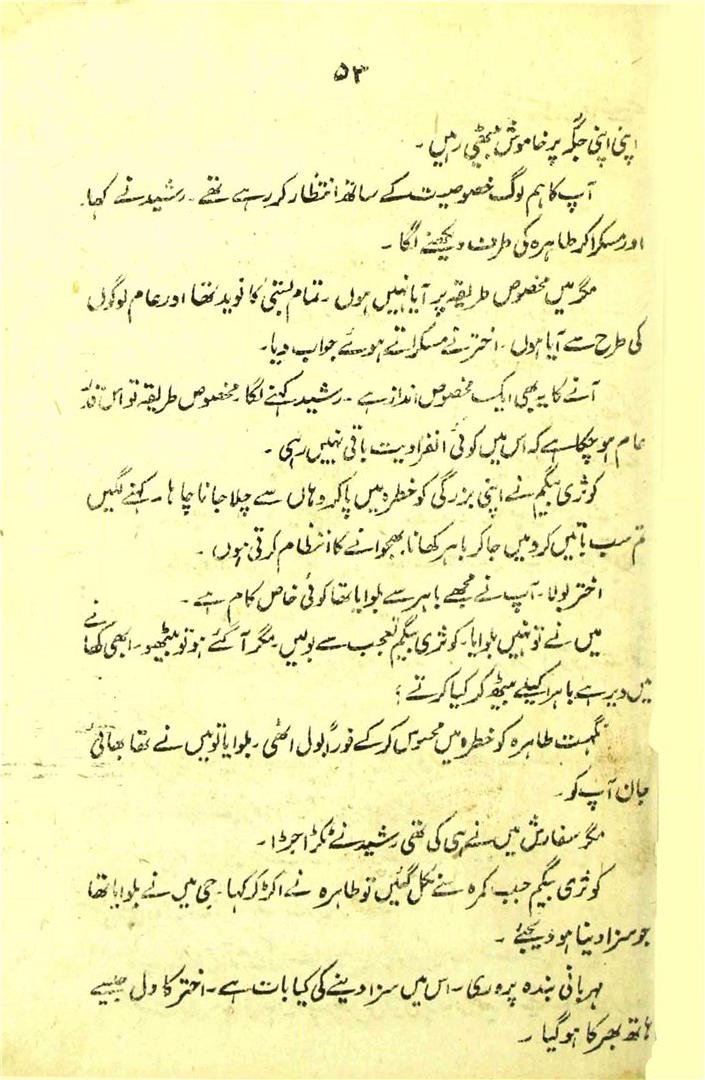 ۵۳
اپنی اپنی جگہ پر خاموش بیٹھی رہیں۔
آپ کا ہم لوگ خصوصیت کے ساتھ انتظار کر رہے تھے۔ رشید نے کہا۔
اور مسکرا کر طاہرہ کی طرف دیکھنے لگا۔
مگر میں مخصوص طریقہ پر آیا نہیں ہوں۔ تمام بستی کا نوید تھا اور عام لوگوں
کی طرح سے آیا ہوں۔ اختر نے مسکراتے ہوئے جواب دیا۔
آنے کا یہ بھی ایک مخصوص انداز ہے۔ رشید کہنے لگا مخصوص طریقہ تو اس قدر
عام ہو چکا ہے کہ اس میں کوئی انفرادیت باقی نہیں رہی۔
کوثری بیگم نے اپنی بزرگی کو خطرہ میں پا کر وہاں سے چلا جانا چاہا۔ کہنے لگیں
تم سب باتیں کرو میں جا کر باہر کھانا بھجوانے کا انتظام کرتی ہوں۔
اختر بولا۔ آپ نے مجھے باہر سے بلوایا تھا کوئی خاص کام ہے۔
میں نے تو نہیں بلوایا۔ کوثری بیگم تعجب سے بولیں۔ مگر آ گئے ہو تو بیٹھو۔ ابھی کھانے
میں دیر ہے باہر اکیلے بیٹھ کر کیا کرتے؛
نگہت طاہرہ کو خطرہ میں محسوس کر کے فوراً بول اٹھی۔ بلوایا تو میں نے تھا بھائی
جان آپ کو۔
مگر سفارش میں نے ہی کی تھی رشید نے ٹکڑا جڑا۔
کوثری بیگم جب کمرہ سے نکل گئیں تو طاہرہ نے اکڑ کر کہا۔ جی میں نے بلوایا تھا
جو سزا دینا ہو دیجئے۔
مہربانی بندہ پروری۔ اس میں سزا دینے کی کیا بات ہے۔ اختر کا دل جیسے
ہاتھ بھر کا ہو گیا۔